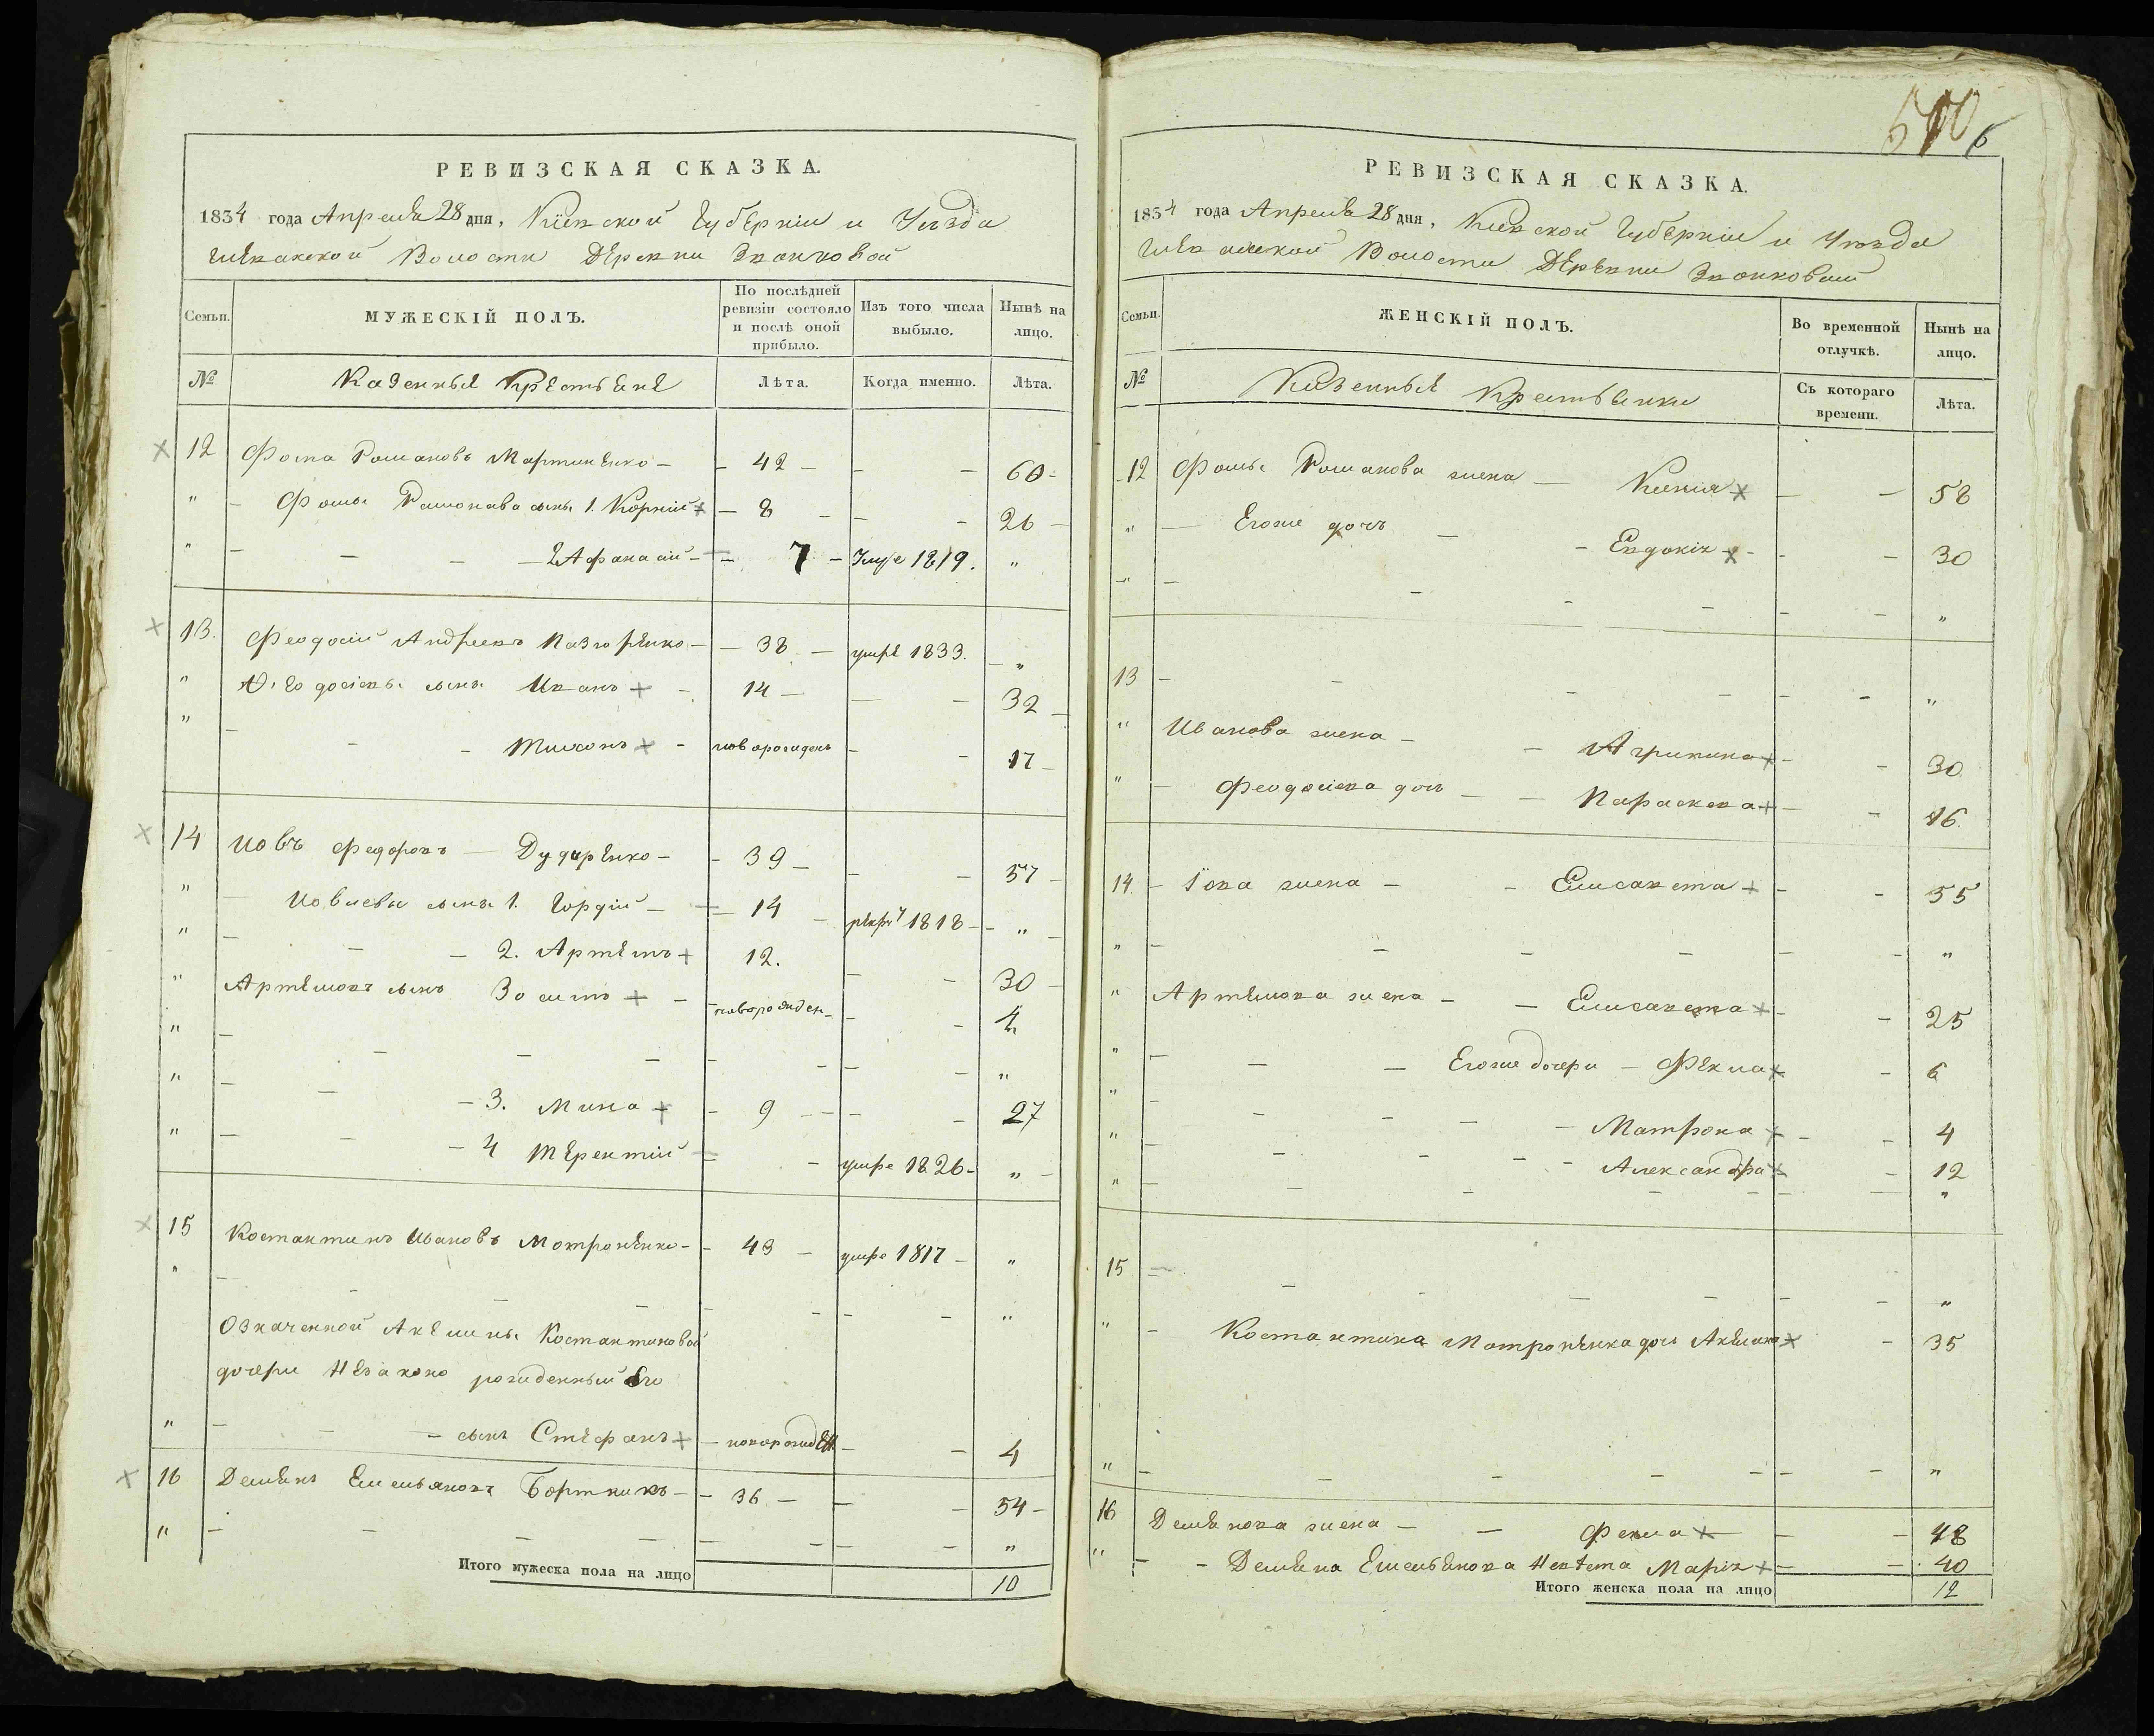 РЕВИЗСКАЯ СКАЗКА.
1834 года Апреля 28 дня, Кіевской Губерніи и Уѣзда
Волости Деревни Звонковой
Семьи.
МУЖЕСКІЙ ПОЛЪ.
По послѣдней ревизіи состояло и послѣ оной прибыло.
Изъ того числа выбыло.
Нынѣ на лицо.
№
Казенные Крестьяне
Лѣта.
Когда именно.
Лѣта.
12 Фома Романовъ Мартиненко - 42 - - - 60 -
" - Фомы Романова сынъ 1. Корній - 8 - - - 26 -
" - - - 2 Афанасій - - 7 - Умре 1819. "
13. Феодосій Андреевъ Назаренко - - 38 - умре 1833. - "
" Феодосіевы сыны Иванъ - 14 - - - 32 -
" - - - Тихонъ - новорожденъ - - 17 -
14 Иовъ Федоровъ - Дударенко - - 39 - - - 57 -
" Иовлевы сыны 1. Гордій - - 14 - рекру 1818 - - "
" - - - 2. Артемъ 12. - - 30 -
" Артемовъ сынъ Зосимъ - новорожден - - - 4
" - - - - - - - - "
" - - - 3. Мина - 9 - - - - 27
" - - - 4 Терентій - - умре 1826 - " -
15 Костантинъ Ивановъ Мотроненко - - 43 - умре 1817 - "
" - - - - - - - - "
Означенной Акелины Костантиновой
дочери Незаконо рожденный его
" - - - сынъ Стефанъ - новорожден - - 4
16 Демьянъ Емельяновъ Бортникъ - - 36 - - - 54 -
" - - - - - - - - "
Итого мужеска пола на лицо 10
6
РЕВИЗСКАЯ СКАЗКА.
1834 года Апреля 28 дня, Кіевской Губерніи и Уѣзда
Волости Деревни Звонковой
Семьи.
ЖЕНСКІЙ ПОЛЪ.
Во временной отлучкѣ.
Нынѣ на лицо.
№
Казенные Крестьянки
Съ котораго времени.
Лѣта.
12 Фомы Романова жена - Ксенія - - 58
" - Егоже дочь - - Евдокія - - - 30
" - - - - - - "
13 - - - - - - "
" Иванова жена - - Агрипина - - 30
" - Феодосіева дочь - - Параскева - - 16
14 - Іова жена - - Елисавета - - 55
" - - - - - - "
" Артемова жена - - Елисавета - - 25
" - - - Егоже дочери - Фекла - 6
" - - - - - Матрона - - 4
" - - - - - Александра - 12
" - - - - - - - "
15 - - - - - - - "
" - Костантина Мотроненка дочь Акелина - 35
" - - - - - - - "
16 Демьянова жена - - Фекла - - 48
" - - Демьяна Емельянова Невѣста Марія - - 40
Итого женска пола на лицо 12